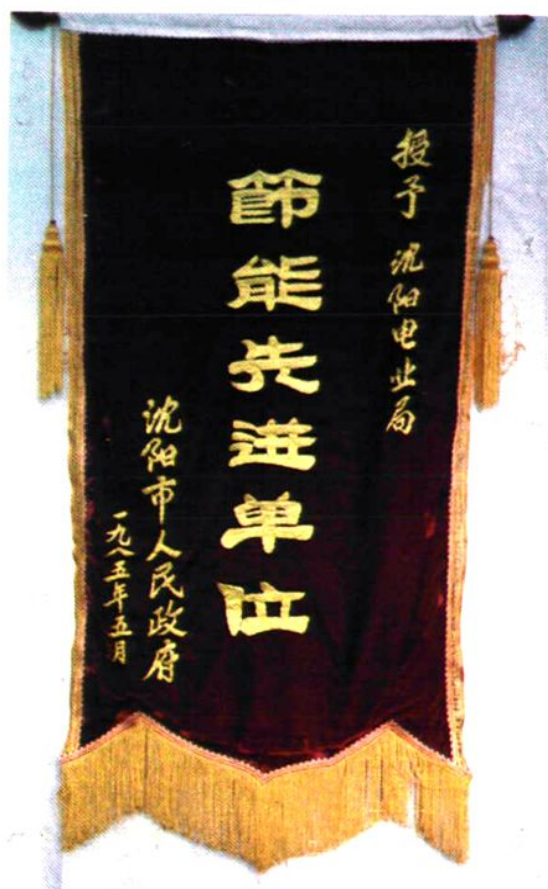 授予 沈阳电业局
節能先进单位
沈阳市人民政府
一九八五年五月